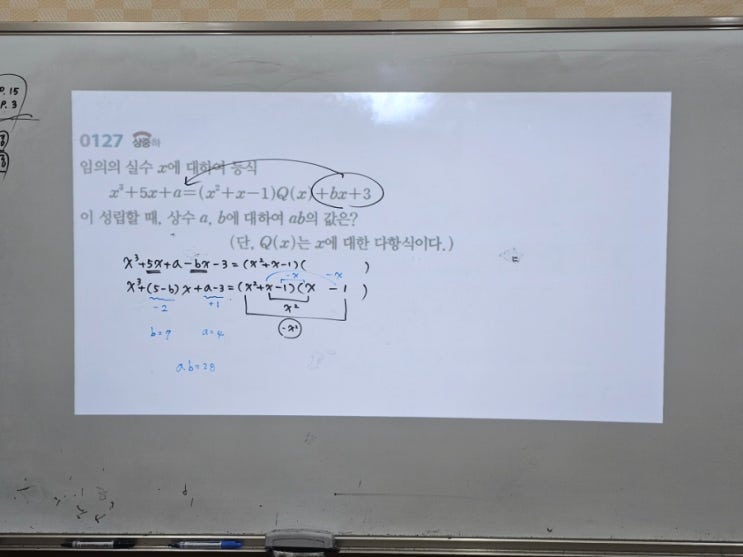 P. 15
P. 3
0127 상중하
임의의 실수 x에 대하여 등식
x³+5x+a=(x²+x-1)Q(x)+bx+3
이 성립할 때, 상수 a, b에 대하여 ab의 값은?
(단, Q(x)는 x에 대한 다항식이다.)
x³+5x+a-bx-3=(x²+x-1)( )
-x -x
x³+(5-b)x+a-3=(x²+x-1)(x -1 )
-2 +1 x²
-x²
b=7 a=4
ab=28